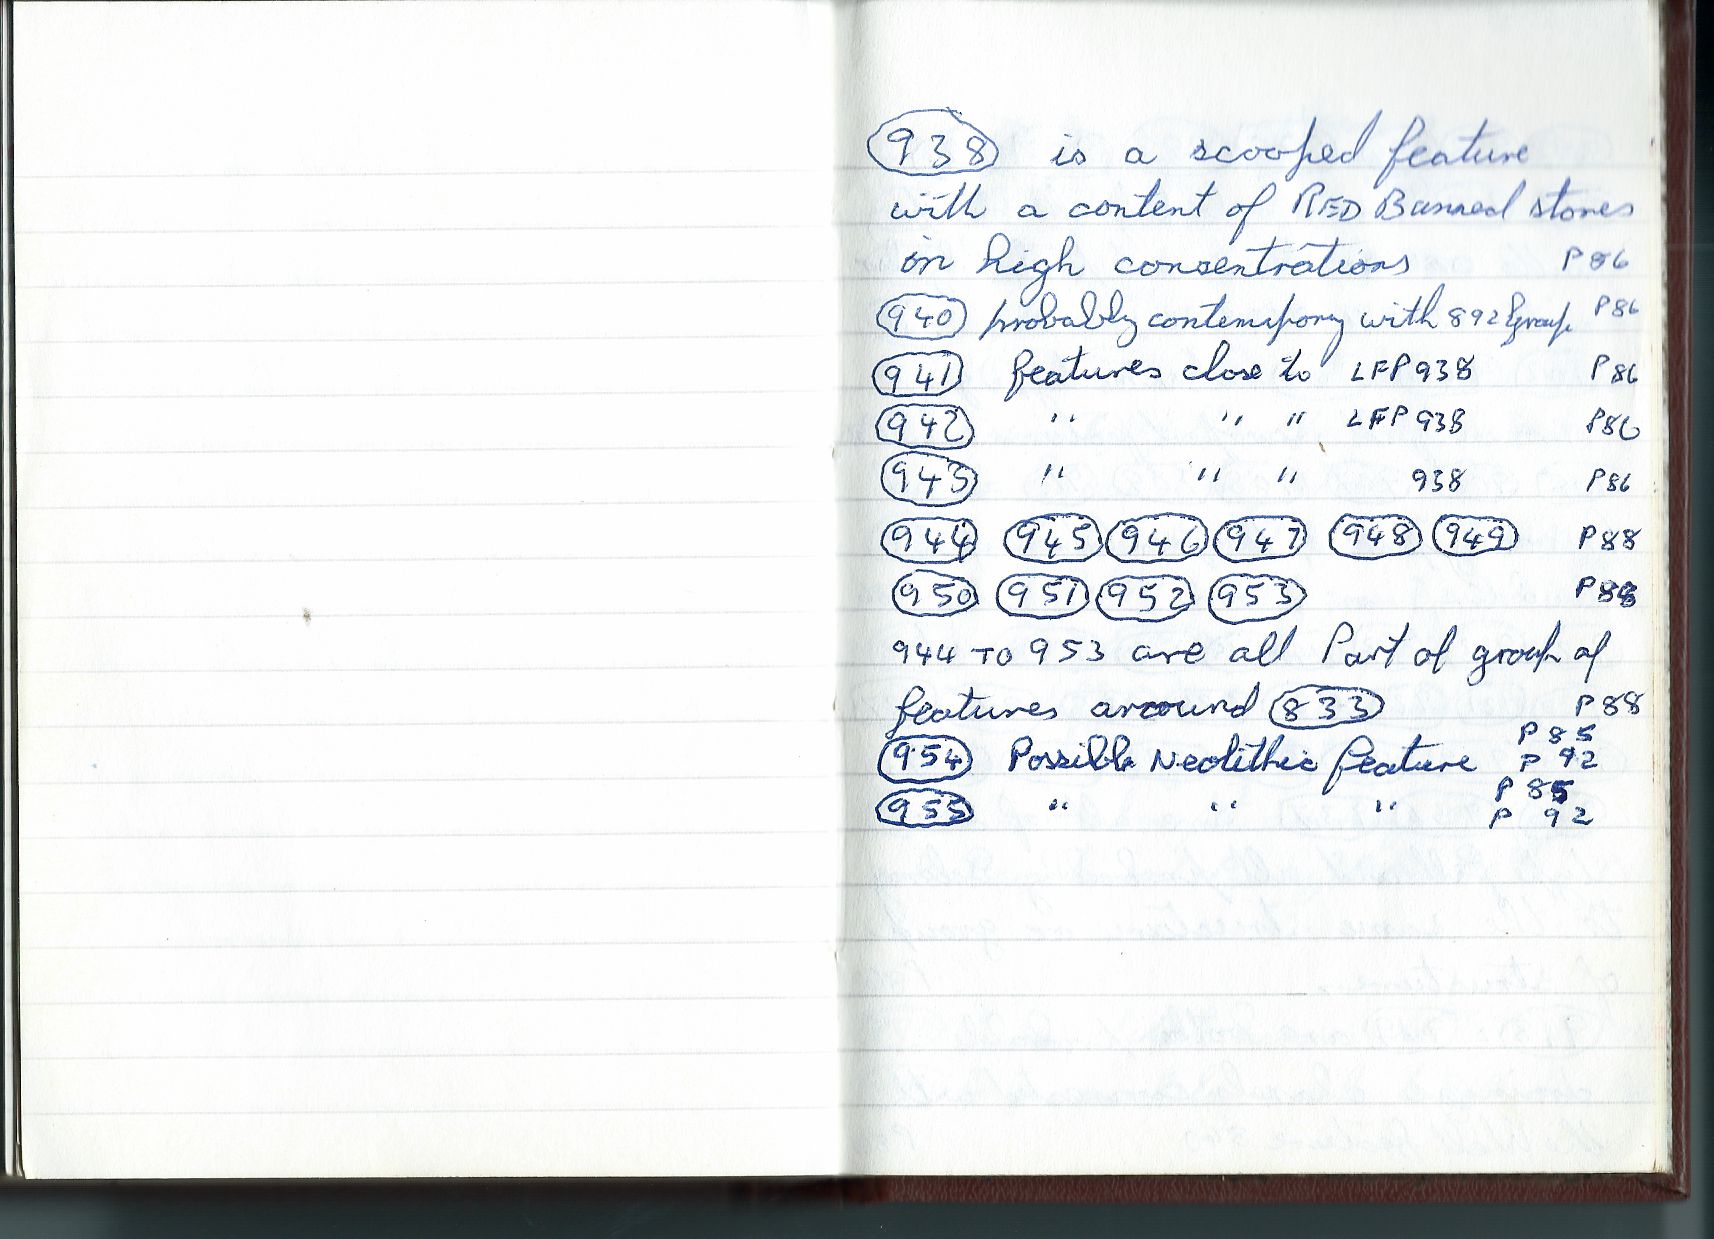 938 is a scooped feature
with a content of RED Burned stones
in high consentrations P86
940 probably contempory with 892 group P86
941 features close to LFP 938 P86
942 " " " LFP 938 P86
943 " " " 938 P86
944 945 946 947 948 949 P88
950 951 952 953 P88
944 TO 953 are all Part of group of
features around 833 P88
954 Possible Neolithic feature P85 P92
955 " " " P85 P92